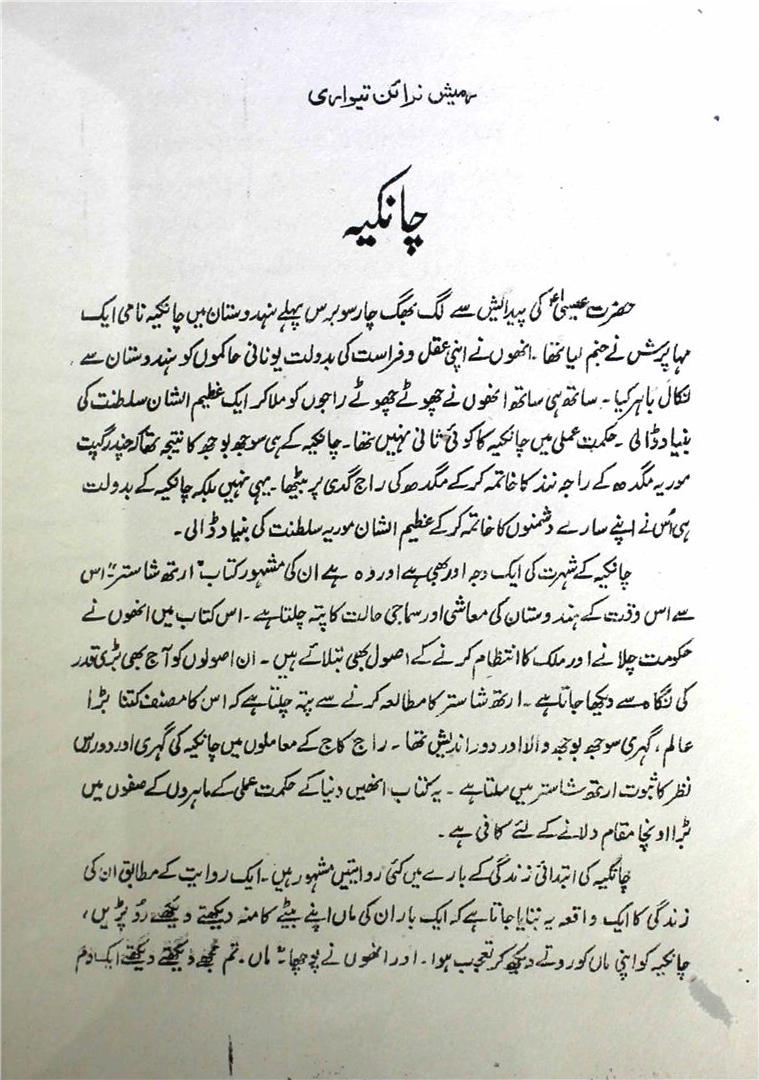 مہیش نرائن تیواری
چانکیہ
حضرت عیسیٰؑ کی پیدائش سے لگ بھگ چار سو برس پہلے ہندوستان میں چانکیہ نامی ایک
مہاپرش نے جنم لیا تھا ۔ انھوں نے اپنی عقل و فراست کی بدولت یونانی حاکموں کو ہندوستان سے
نکال باہر کیا ۔ ساتھ ہی ساتھ انھوں نے چھوٹے چھوٹے راجوں کو ملا کر ایک عظیم الشان سلطنت کی
بنیاد ڈالی ۔ حکمت عملی میں چانکیہ کا کوئی ثانی نہیں تھا ۔ چانکیہ کے ہی سوجھ بوجھ کا نتیجہ تھا کہ چندر گپت
موریہ مگدھ کے راجہ نند کا خاتمہ کرکے مگدھ کی راج گدی پر بیٹھا ۔ یہی نہیں بلکہ چانکیہ کے بدولت
ہی اُس نے اپنے سارے دشمنوں کا خاتمہ کرکے عظیم الشان موریہ سلطنت کی بنیاد ڈالی ۔
چانکیہ کے شہرت کی ایک وجہ اور بھی ہے اور وہ ہے ان کی مشہور کتاب " ارتھ شاستر " اس
سے اس وقت کے ہندوستان کی معاشی اور سماجی حالت کا پتہ چلتا ہے ۔ اس کتاب میں انھوں نے
حکومت چلانے اور ملک کا انتظام کرنے کے اصول بھی بتلائے ہیں ۔ ان اصولوں کو آج بھی بڑی قدر
کی نگاہ سے دیکھا جاتا ہے ۔ ارتھ شاستر کا مطالعہ کرنے سے پتہ چلتا ہے کہ اس کا مصنف کتنا بڑا
عالم ، گہری سوجھ بوجھ والا اور دور اندیش تھا ۔ راج کاج کے معاملوں میں چانکیہ کی گہری اور دوربیں
نظر کا ثبوت ارتھ شاستر میں ملتا ہے ۔ یہ کتاب انھیں دنیا کے حکمت عملی کے ماہروں کے صفوں میں
بڑا اونچا مقام دلانے کے لئے کافی ہے ۔
چانکیہ کی ابتدائی زندگی کے بارے میں کئی روایتیں مشہور ہیں ۔ ایک روایت کے مطابق ان کی
زندگی کا ایک واقعہ یہ بتایا جاتا ہے کہ ایک بار ان کی ماں اپنے بیٹے کا منہ دیکھتے دیکھتے رو پڑیں ،
چانکیہ کو اپنی ماں کو روتے دیکھ کر تعجب ہوا ۔ اور انھوں نے پوچھا ۔ " ماں . تم مجھے دیکھتے دیکھتے ایک دم